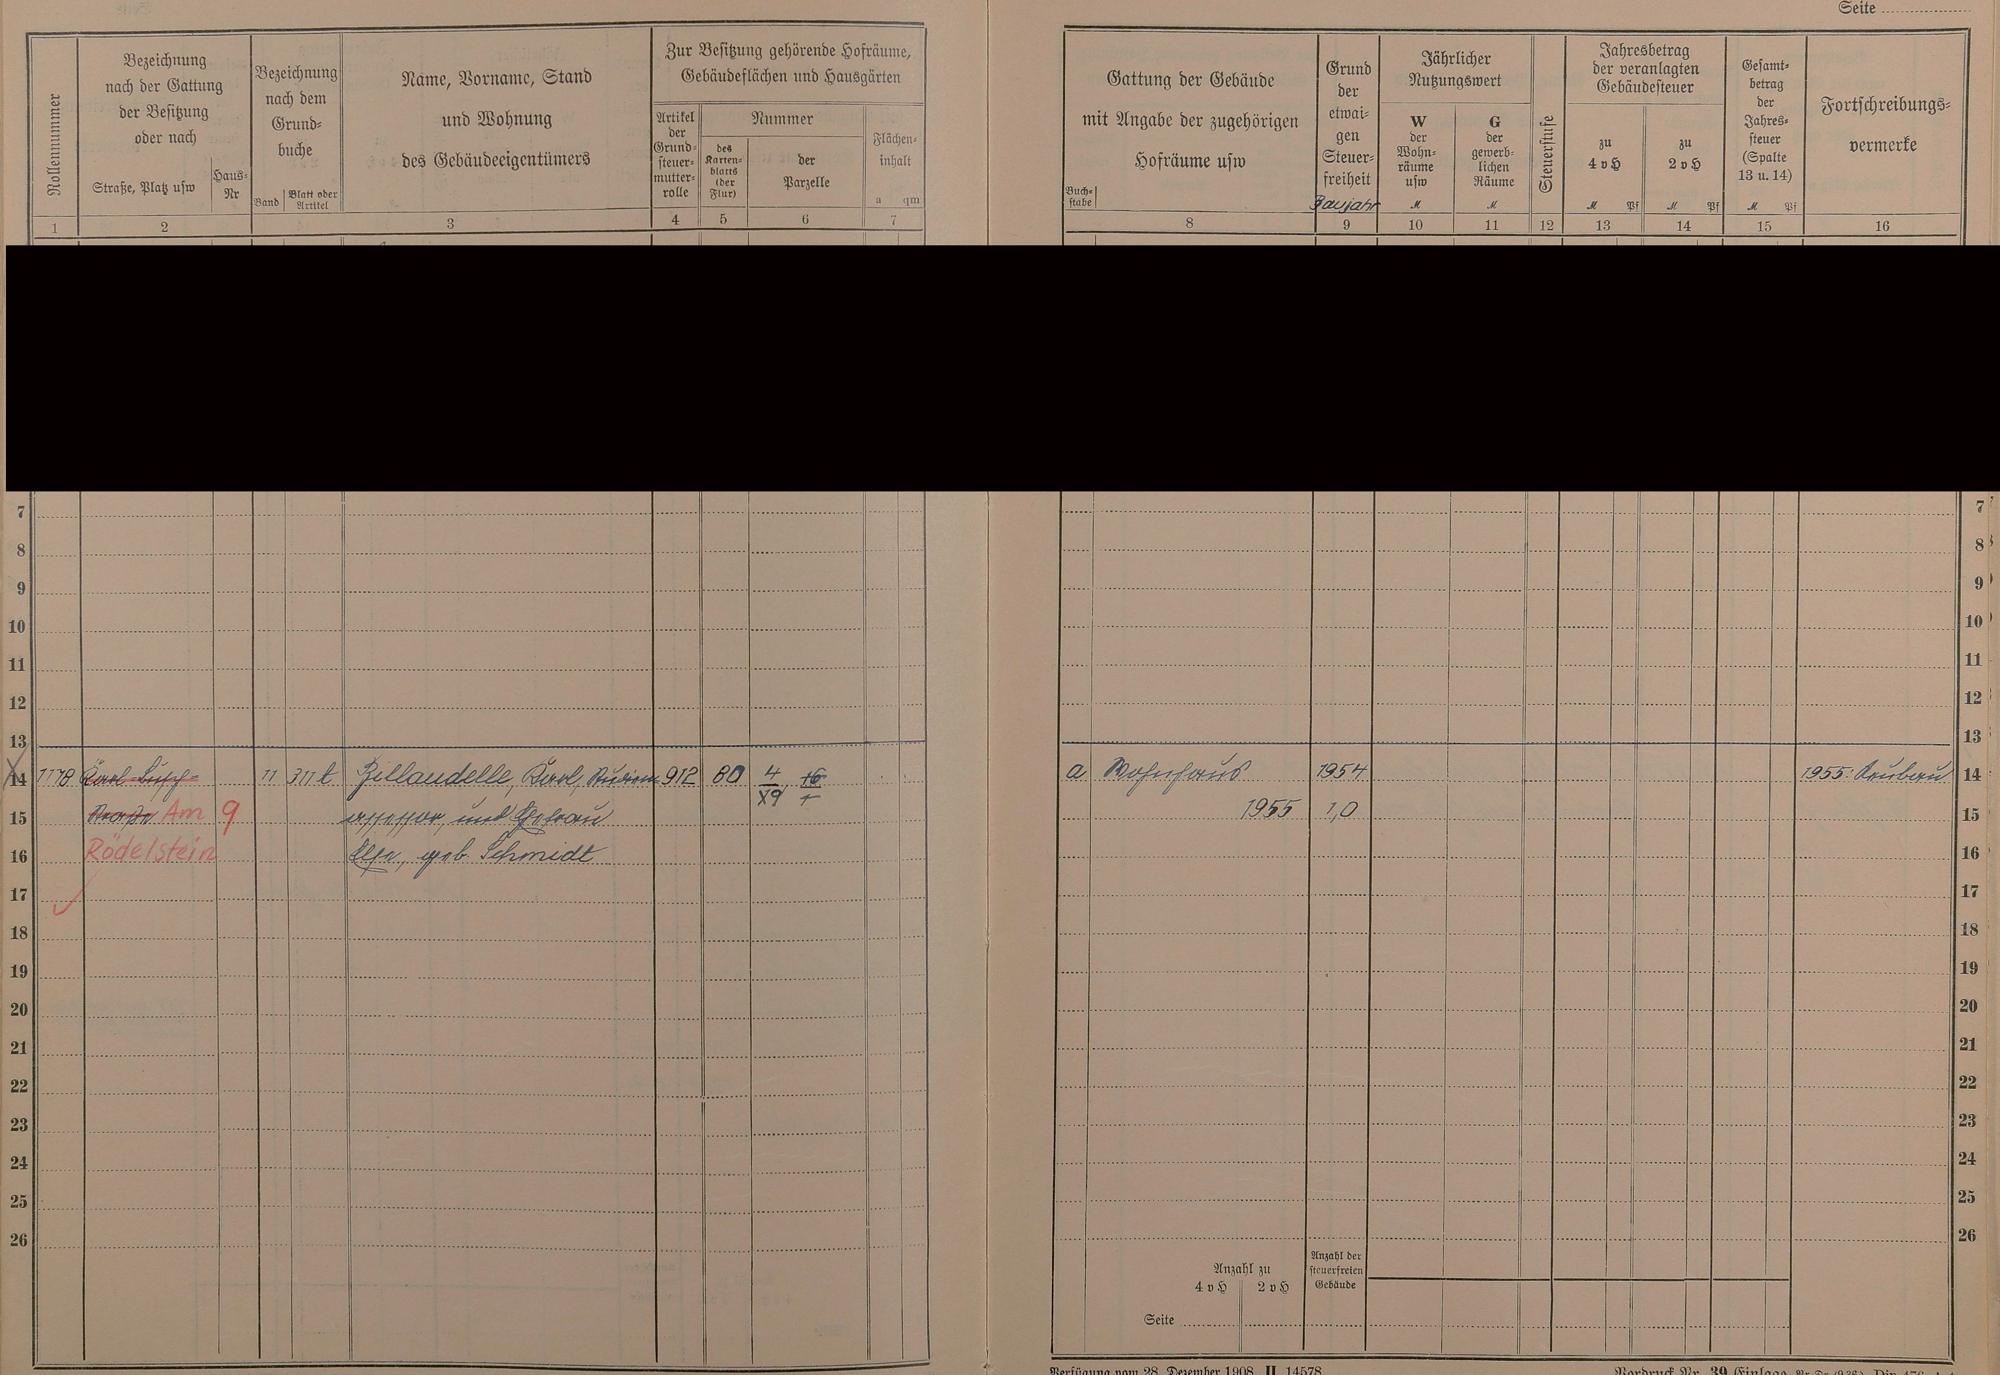 Seite
Rollennummer
Bezeichnung
nach der Gattung
der Besitzung
oder nach
Straße, Platz usw
Haus=
Nr
Bezeichnung
nach dem
Grund=
buche
Band
Blatt oder
Artikel
Name, Vorname, Stand
und Wohnung
des Gebäudeeigentümers
Zur Besitzung gehörende Hofräume,
Gebäudeflächen und Hausgärten
Artikel
der
Grund=
steuer=
mutter=
rolle
Nummer
des
Karten=
blatts
(der
Flur)
der
Parzelle
Flächen=
inhalt
a qm
1 2 3 4 5 6 7
Gattung der Gebäude
mit Angabe der zugehörigen
Hofräume usw
Buch=
stabe
Grund
der
etwai=
gen
Steuer=
freiheit
Baujahr
Jährlicher
Nutzungswert
W
der
Wohn=
räume
usw
M
G
der
gewerb=
lichen
Räume
M
Steuerstufe
Jahresbetrag
der veranlagten
Gebäudesteuer
zu
4 v H
M Pf
zu
2 v H
M Pf
Gesamt=
betrag
der
Jahres=
steuer
(Spalte
13 u. 14)
M Pf
Fortschreibungs=
vermerke
8 9 10 11 12 13 14 15 16
7 7
8 8
9 9
10 10
11 11
12 12
13 13
14 1178 Karl-Busch= 11 311t Zillaudelle, Karl, Studien 912 80 4/89 a Wohnhaus 1954 1955: Neubau 14
15 Straße Am 9 assessor, und Ehefrau 1955 1,0 15
16 Rödelstein Else, geb. Schmidt 16
17 17
18 18
19 19
20 20
21 21
22 22
23 23
24 24
25 25
26 26
Anzahl zu
4 v H 2 v H
Anzahl der
steuerfreien
Gebäude
Seite
Verfügung vom 28. Dezember 1908 II 14578
Vordruck Nr. 39 Einlage